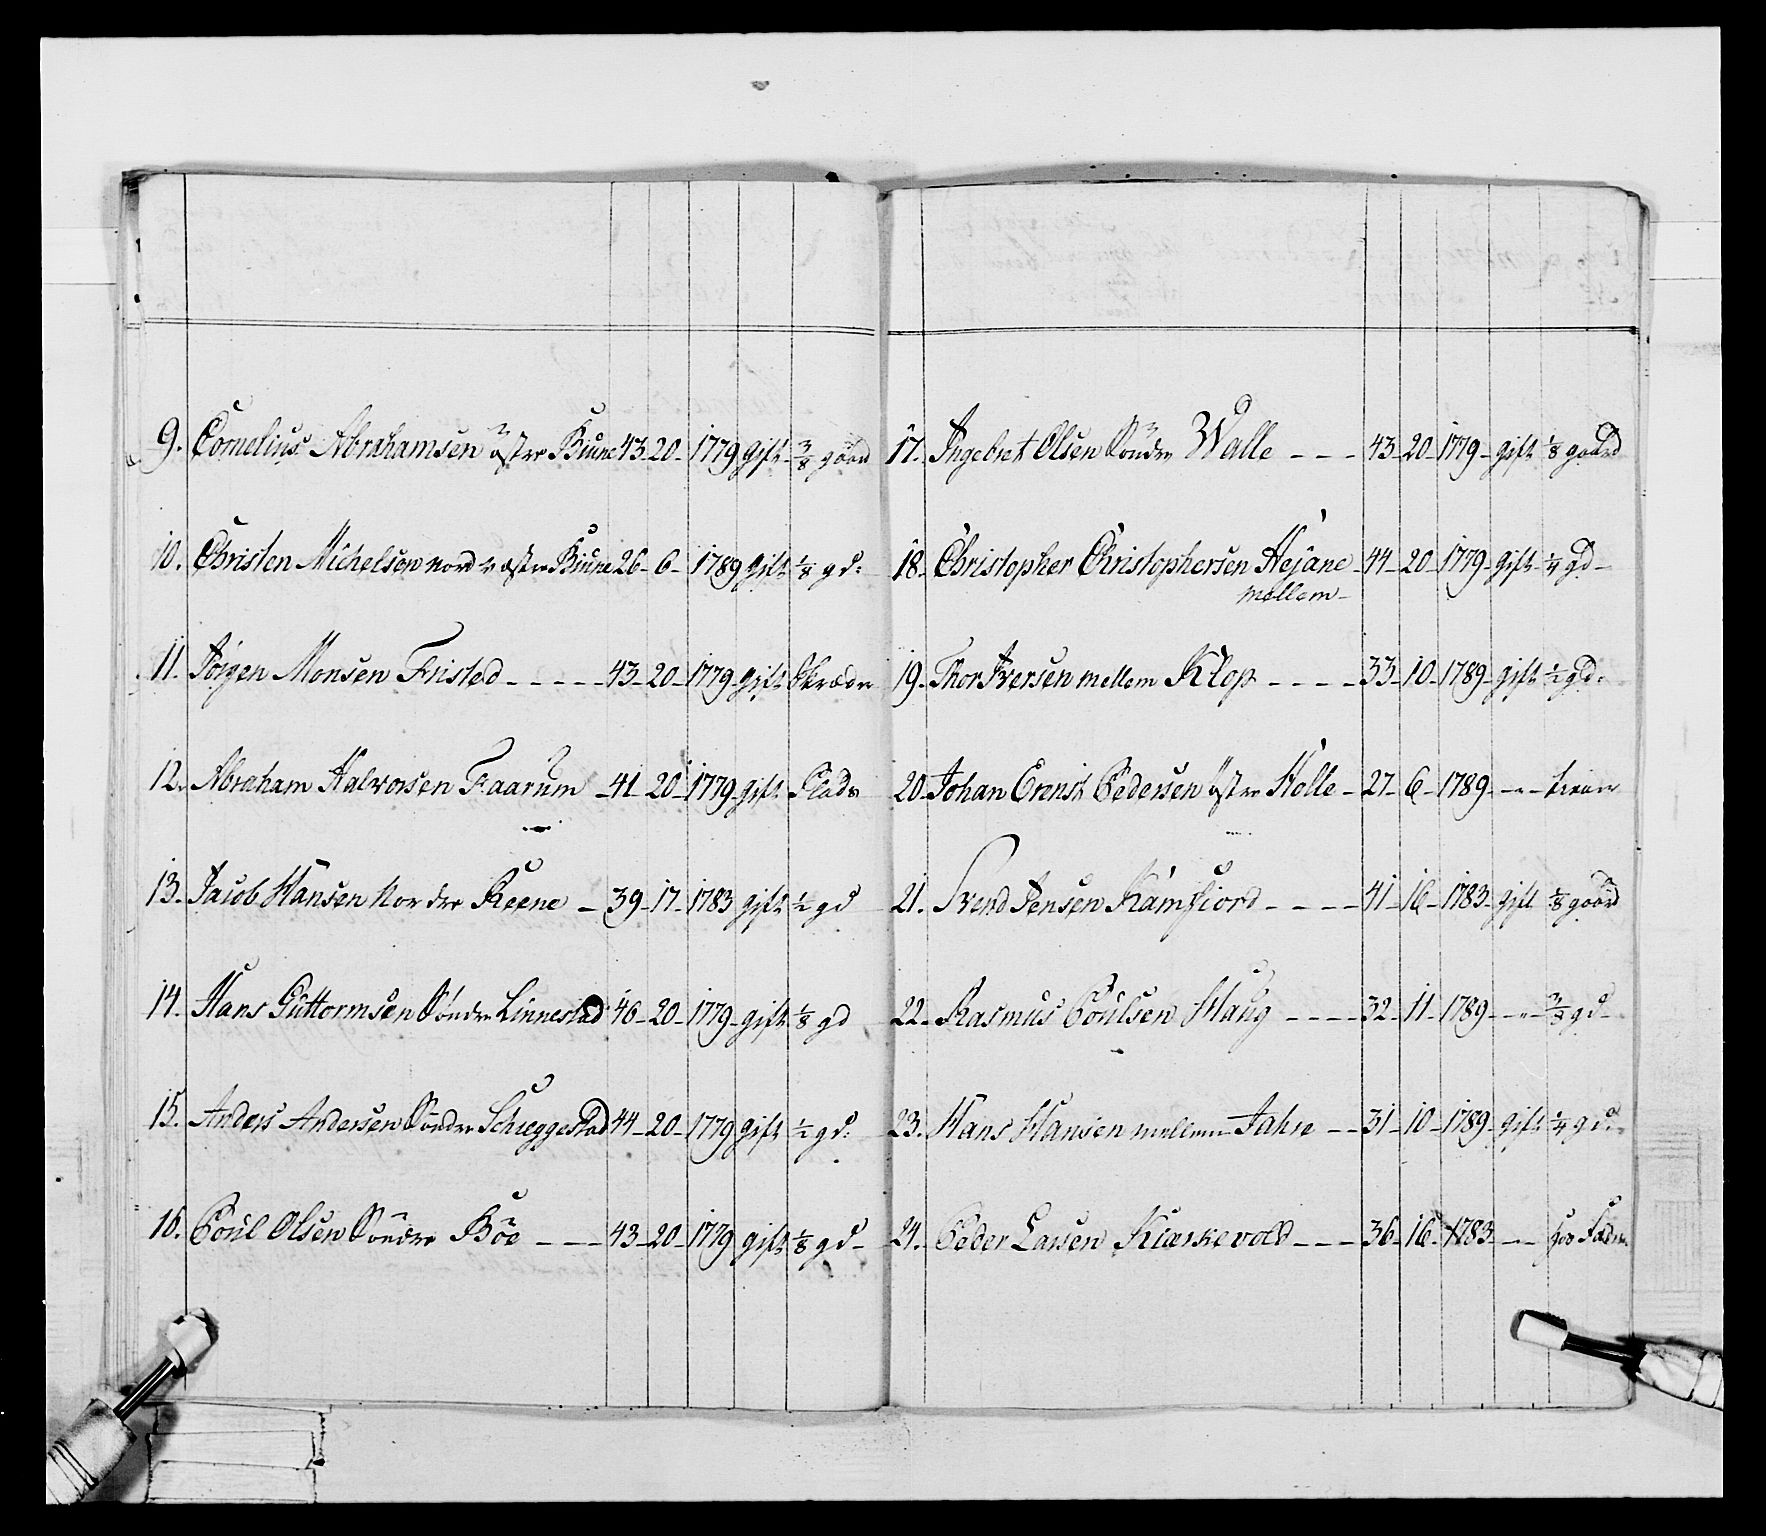 9. Cornelius Abrahamsen östre Biune 43 - 20 - 1779 gift 3/8 gaard
10. Christen Michelsen nord vestre Biune 26 - 6 - 1789 gift 1/8 gd:
11. Jörgen Monsen Fristed - - - - - 43 - 20 - 1779 - gift Skræder
12. Abraham Halvorsen Faarum - 41 - 20 - 1779 - gift Plads
13. Jacob Hansen Nordre Reene - 39 - 17 - 1783 gift 1/2 gd
14. Hans Guttormsen Söndre Linnestad 46 - 20 - 1779 - gift 1/8 gd
15. Anders Andersen Söndre Schieggestad 44 - 20 - 1779 gift 1/2 gd:
16. Poul Olsen Söndre Böe - - - 43 - 20 - 1779 gift 1/8 gd -
17. Ingebret Olsen Söndre Walle - - - 43 - 20 - 1779 - gift 1/8 gaard
18. Christopher Christophersen Hejane - 44 - 20 - 1779 - gift - 1/4 gd -
mellem -
19. Thor Iversen mellem Klop - - - - 33 - 10 - 1789 - gift 1/2 gd:
20. Johan Ernst Pedersen östre Holle - 27 - 6 - 1789 - - " -
21. Svend Jensen Kamfiord - - - - 41 - 16 - 1783 - gift 1/8 gaard
22. Rasmus Poulsen Haug - - - - 32 - 11 - 1789 - - " - 3/8 gd -
23. Hans Hansen mellem Jahre - - 31 - 10 - 1789 - gift 1/4 gd:
24. Peder Larsen Kiærkevold - - - 36 - 16 - 1783 - - - hos Fader